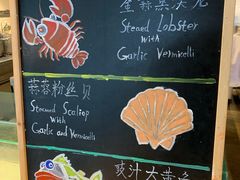 Steamed Lobster
with
Garlic Vermicelli
蒜蓉粉丝贝
Steamed Scallop
with
Garlic and Vermicelli
豉汁大黄鱼